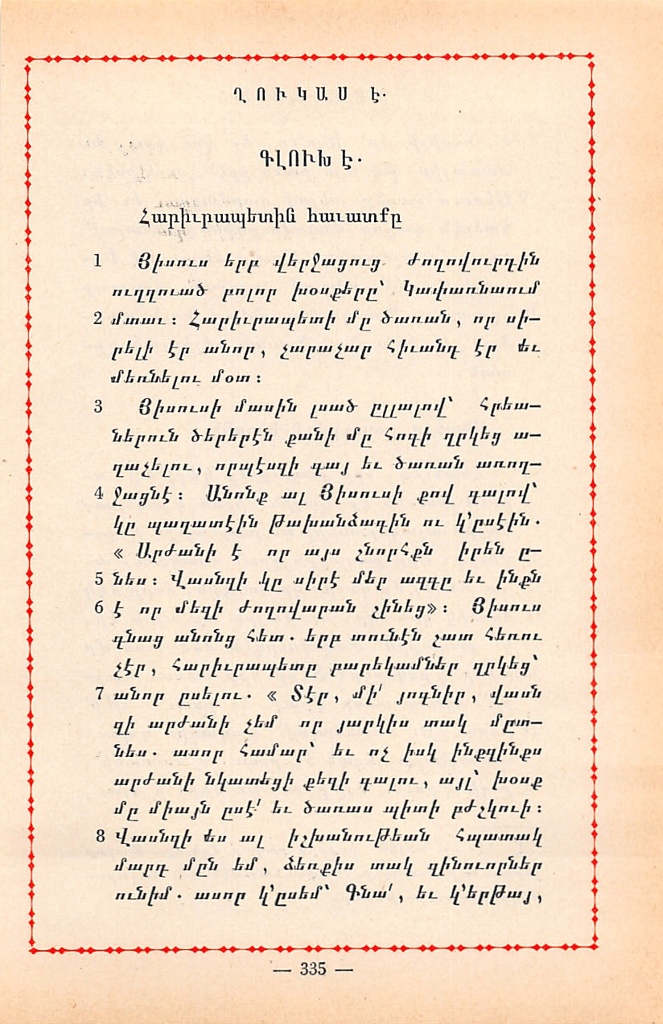 ՂՈՒԿԱՍ է.
ԳԼՈՒԽ է.
Հարիւրապետին հաւատքը
1 Յիսուս երբ վերջացուց ժողովուրդին
ուղղուած բոլոր խօսքերը՝ Կափառնաում
2 մտաւ։ Հարիւրապետի մը ծառան, որ սի–
րելի էր անոր, չարաչար հիւանդ էր եւ
մեռնելու մօտ։
3 Յիսուսի մասին լսած ըլլալով՝ հրեա–
ներուն ծերերէն քանի մը հոգի ղրկեց ա–
ղաչելու, որպէսզի գայ եւ ծառան առող–
4 ջացնէ։ Անոնք ալ Յիսուսի քով գալով՝
կը պաղատէին թախանձագին ու կ՚ըսէին.
« Արժանի է որ այս շնորհքն իրեն ը–
5 նես։ Վասնզի կը սիրէ մեր ազգը եւ ինքն
6 է որ մեզի ժողովարան շինեց»։ Յիսուս
գնաց անոնց հետ. երբ տունէն շատ հեռու
չէր, հարիւրապետը բարեկամներ ղրկեց՝
7 անոր ըսելու. « Տէր, մի՛ յոգնիր, վասն
զի արժանի չեմ որ յարկիս տակ մըտ–
նես. ասոր համար՝ եւ ոչ իսկ ինքզինքս
արժանի նկատեցի քեզի գալու, այլ՝ խօսք
մը միայն ըսէ՛ եւ ծառաս պիտի բժշկուի։
8 Վասնզի ես ալ իշխանութեան հպատակ
մարդ մըն եմ, ձեռքիս տակ զինուորներ
ունիմ. ասոր կ՚ըսեմ՝ Գնա՛, եւ կ՚երթայ,
— 335 —